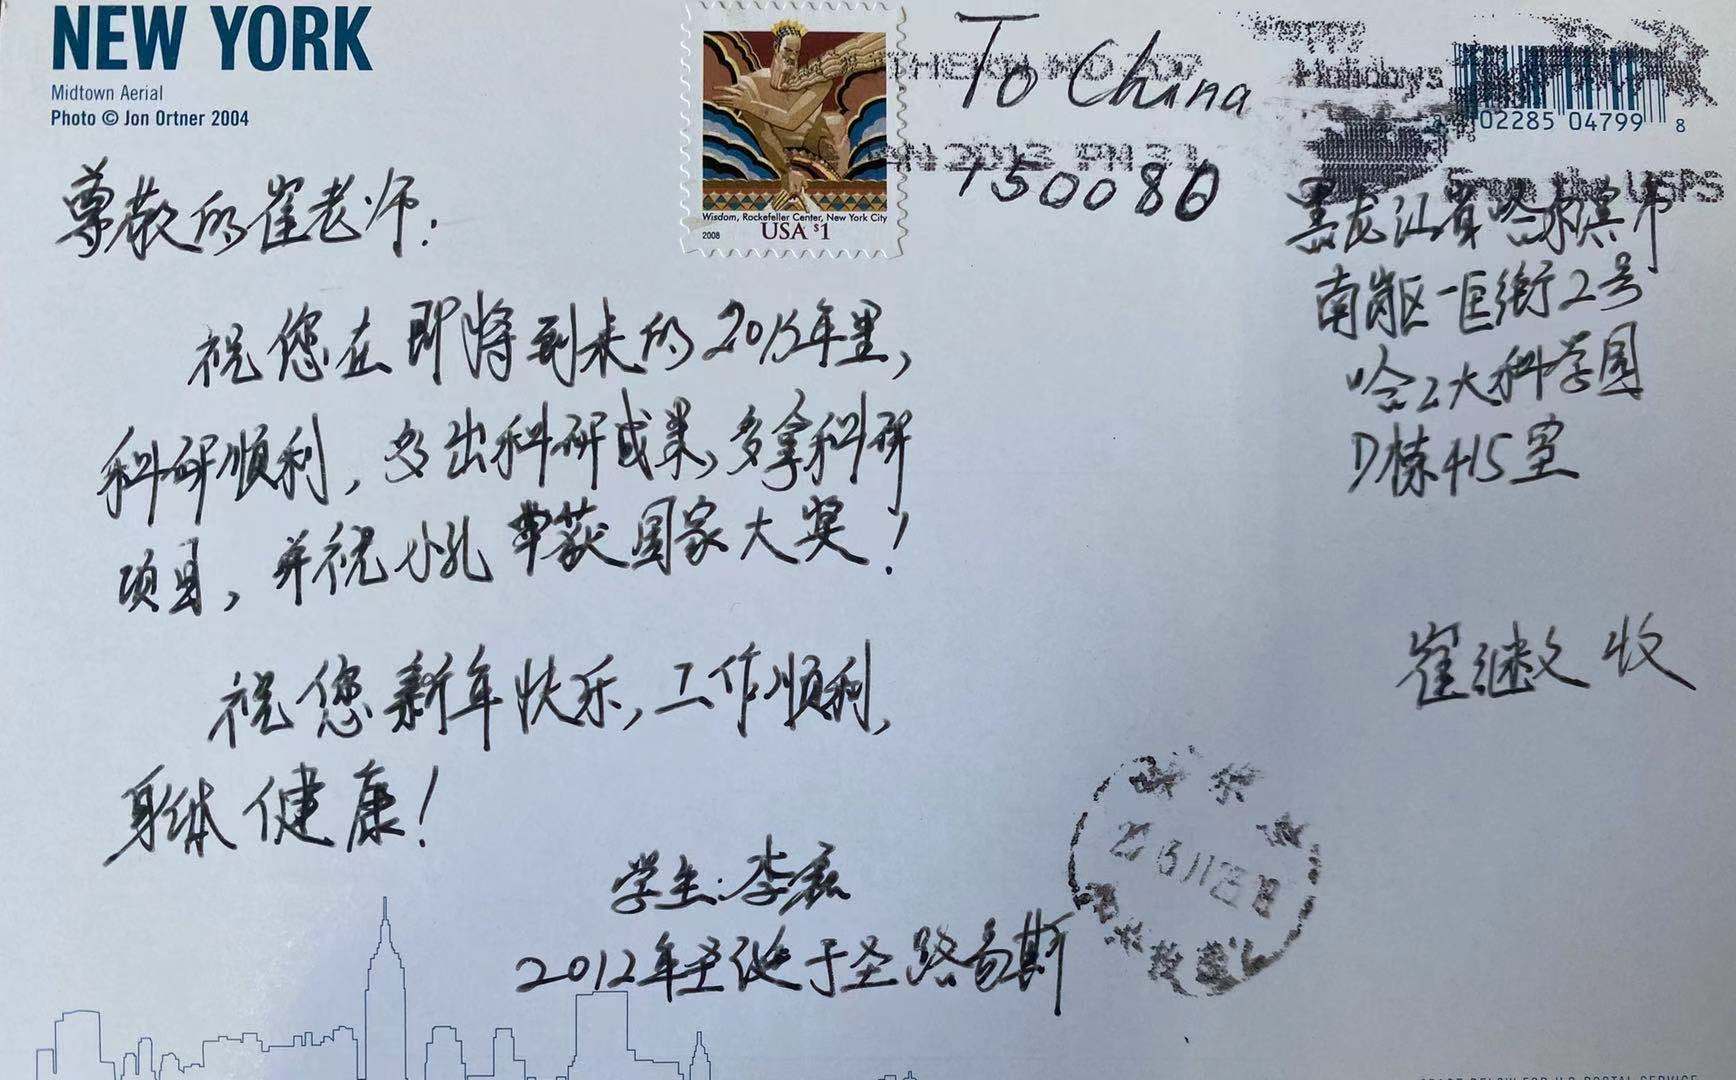 NEW YORK
Midtown Aerial
Photo © Jon Ortner 2004
Wisdom, Rockefeller Center, New York City
2008
USA $1
To China
150080
Happy
Holidays
From the USPS
JAN 2013 PM 3 L
02285 04799 8
尊敬的崔老师:
祝您在即将到来的2013年里,
科研顺利,多出科研成果,多拿科研
项目,并祝小孔 荣获国家大奖!
祝您新年快乐,工作顺利,
身体健康!
学生:李磊
2012年圣诞于圣路易斯
黑龙江省哈尔滨市
南岗区一匡街2号
哈工大科学园
D栋415室
崔继文 收